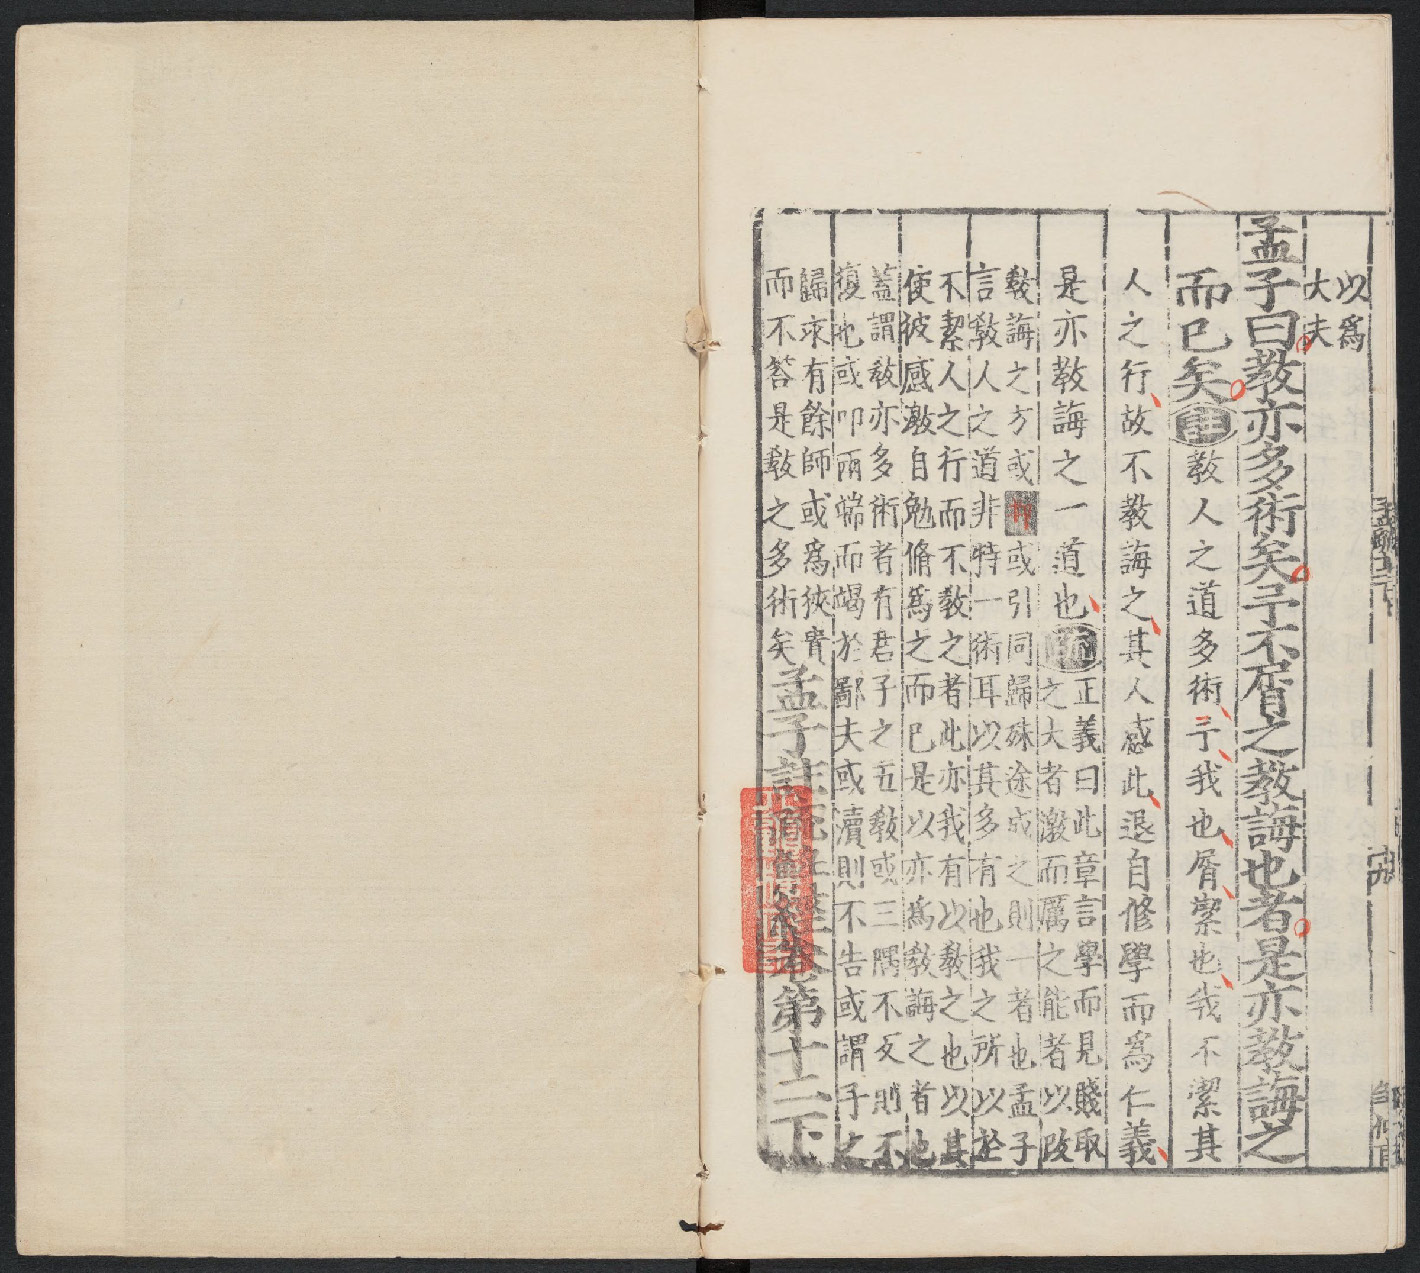 以爲
大夫
孟子曰教亦多術矣予不屑之教誨也者是亦教誨之
而已矣
教人之道多術予我也屑絜也我不潔其
人之行故不教誨之其人感此退自修學而爲仁義
是亦教誨之一道也
疏
正義曰此章言學而見賤取
之大者激而厲之能者以改
教誨之方或
或引同歸殊途成之則一者也孟子
言教人之道非特一術耳以其多有也我之所以於
不絜人之行而不教之者此亦我有以教之也以其
使彼感激自勉脩爲之而已是以亦爲教誨之者也
蓋謂教亦多術者有君子之五教或三隅不反則不
復也或叩兩端而竭於鄙夫或瀆則不告或謂子之
歸求有餘師或爲挾貴
而不荅是教之多術矣
孟子註疏解經卷第十二下